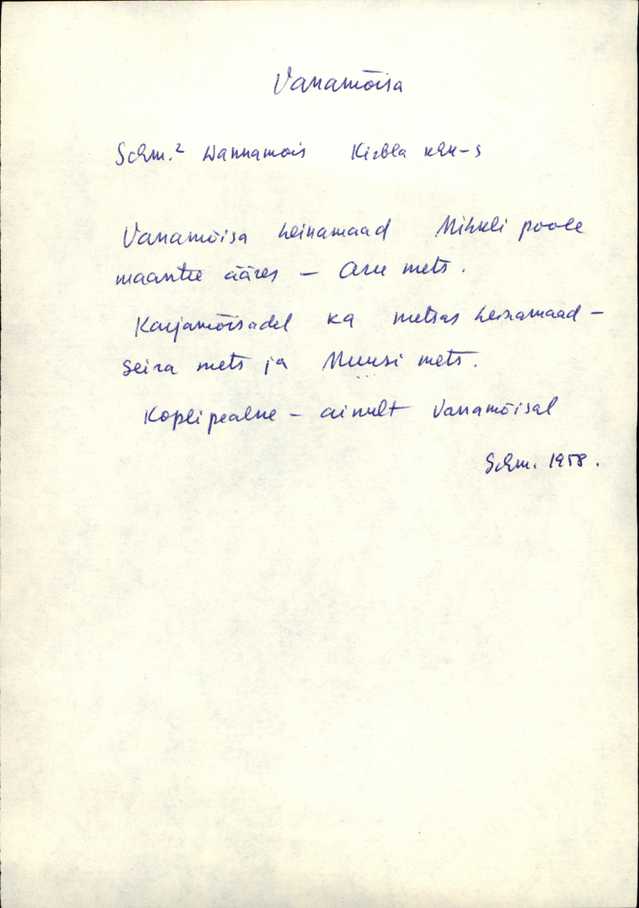 Vanamõisa
Schm.² Wannamois Kirbla khk-s
Vanamõisa heinamaad Mihkli poole
maantee ääres – Aru mets.
Karjamõisadel ka metsas heinamaad –
Seira mets ja Muusi mets.
Koplipealne – ainult Vanamõisal
Schm. 1958.